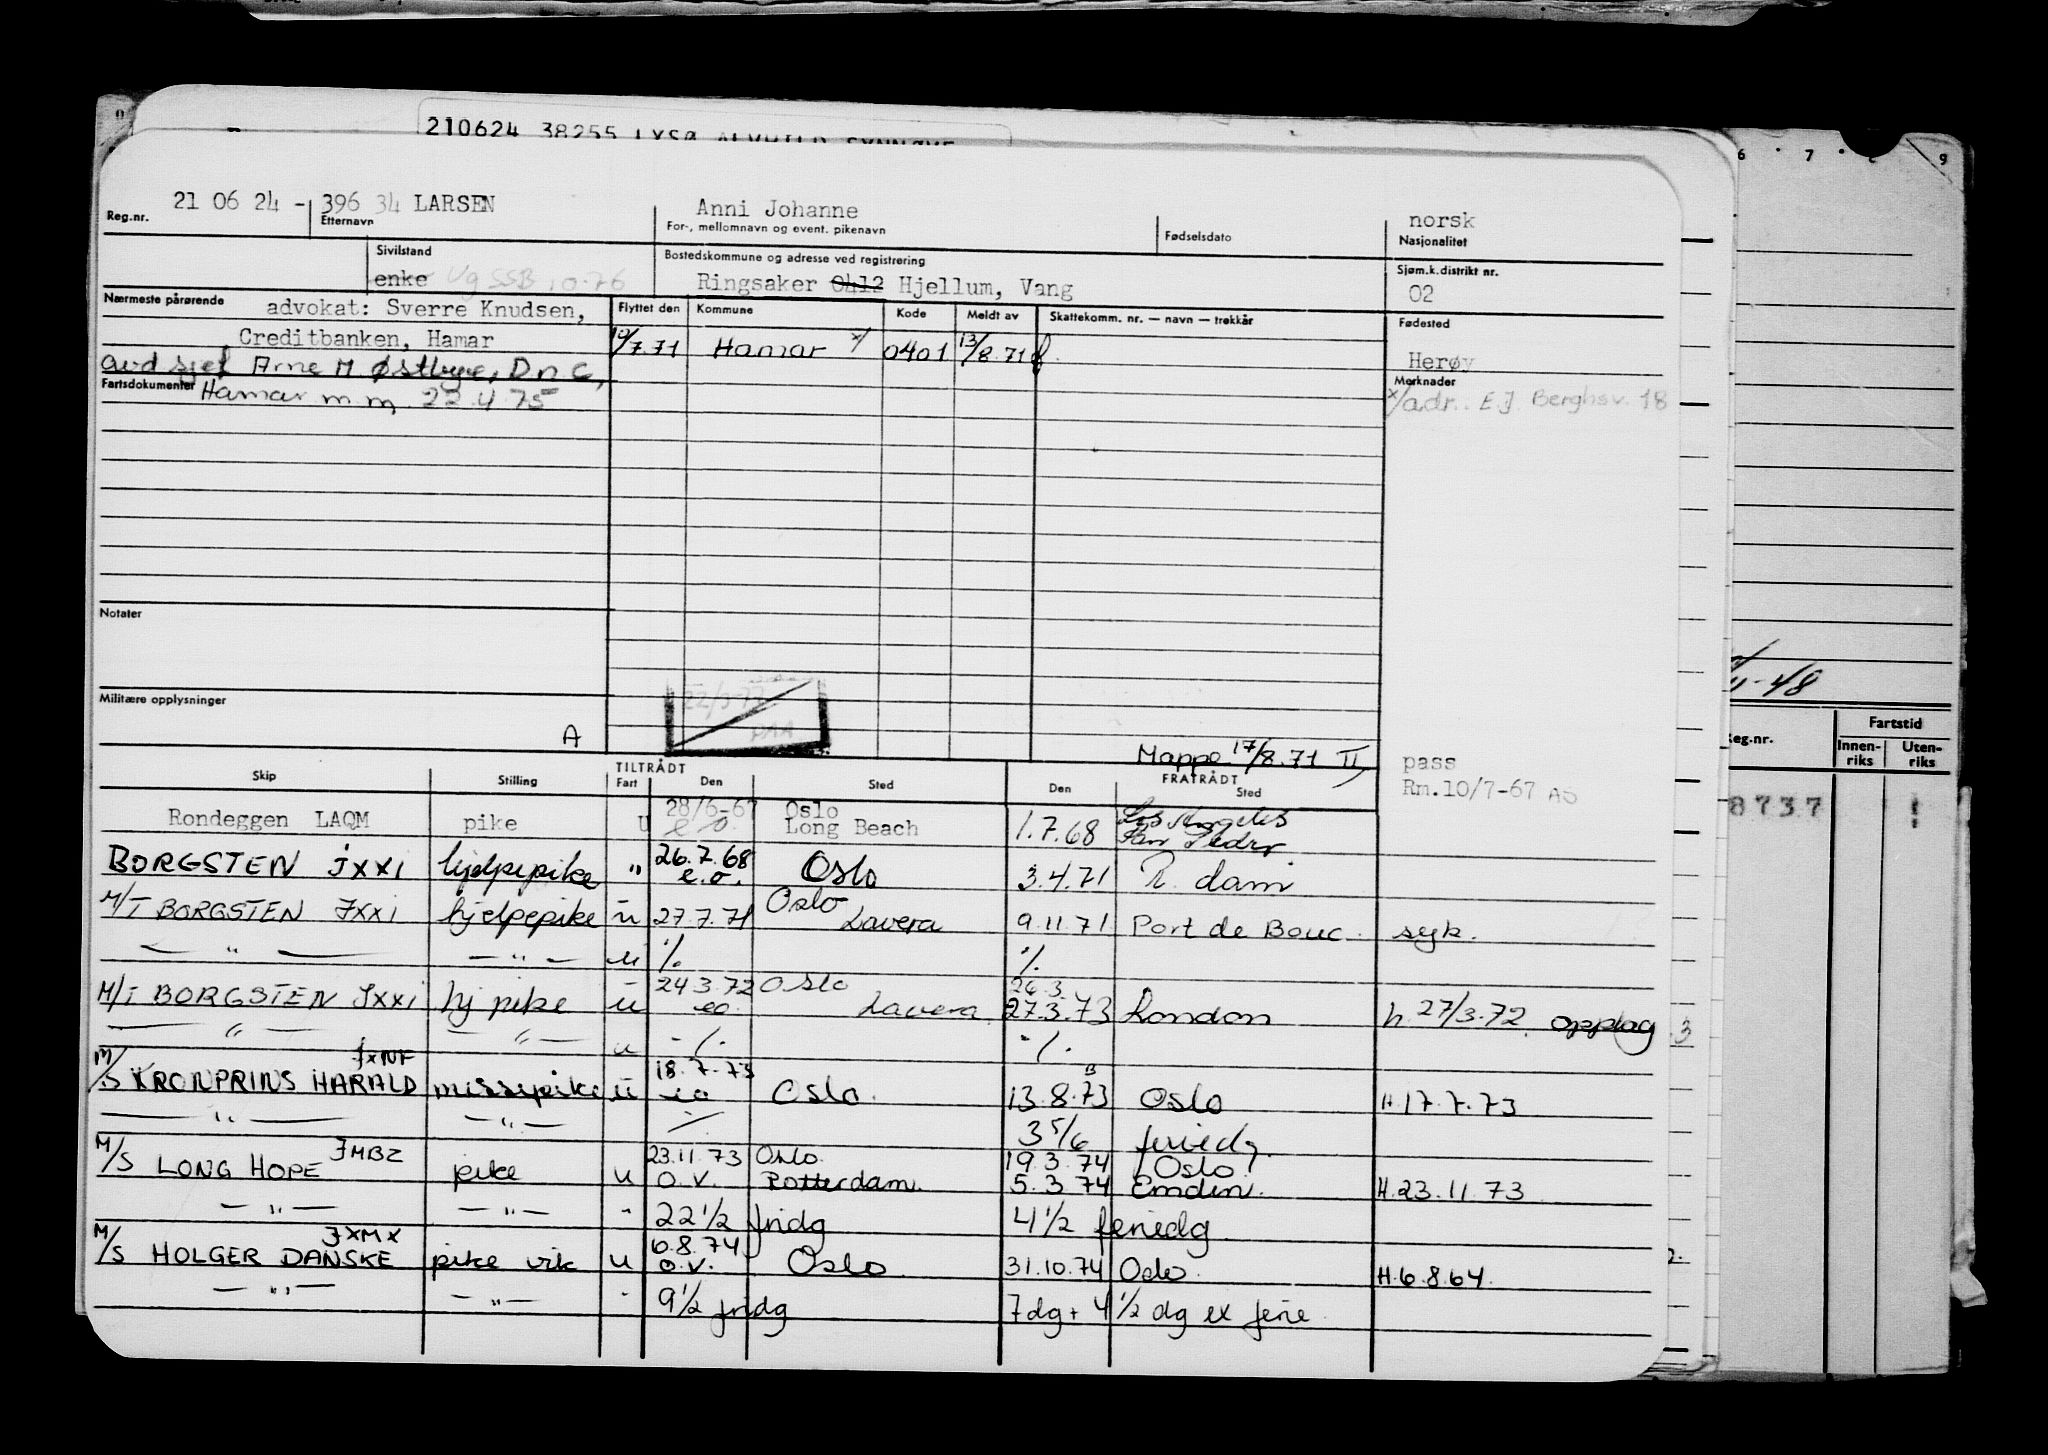 210624 38255 LYSØ ALVHILD SYNNØVE
21 06 24 - 396 34 LARSEN Anni Johanne norsk
Reg.nr. Etternavn For-, mellomnavn og event. pikenavn Fødselsdato Nasjonalitet
Sivilstand Bostedskommune og adresse ved registrering Sjøm.k.distrikt nr.
enke Ringsaker 0412 Hjellum, Vang 02
Nærmeste pårørende advokat: Sverre Knudsen, Flyttet den Kommune Kode Meldt av Skattekomm. nr. — navn — trekkår Fødested
Creditbanken, Hamar 10/7.71 Hamar x/ 0401 13/8.71 Herøy
avd sjef Arne M Østbye, D n C,
Fartsdokumenter Hamar m.m. 22.4.75 Merknader
x/adr. E.J. Berghsv. 18
Notater
Militære opplysninger
A
Mappe 17/8.71 II
pass
Rm.10/7-67 AS
TILTRÅDT FRATRÅDT
Skip Stilling Fart Den Sted Den Sted
28/6-67 Oslo Los Angeles
Rondeggen LAQM pike U e o. Long Beach 1.7.68 San Pedro.
BORGSTEN JXXI hjelpepike " 26.7.68 e.o. Oslo 3.4.71 R. dam
M/T BORGSTEN JXXI hjelpepike u 27.7.71 Oslo Lavera 9.11.71 Port de Bouc. syk.
— " — — " — u ./. ./.
M/T BORGSTEN JXXI hj pike u 24 3.72 eo. Oslo Lavera 26.3. 27.3.73 London h. 27/3.72. opplag
— " — — " — u -/. -/.
M/S KRONPRINS HARALD JXNF messepike u 18.7.73 eo Oslo. 13.8.73 Oslo H.17.7.73
— " — — " — 3 5/6 feriedg.
M/S LONG HOPE JMBZ pike u 23.11.73 Oslo. 19.3.74 Oslo
o.v. Rotterdam. 5.3.74 Emden. H.23.11.73
— " — — " — - 22 1/2 fridg 4 1/2 feriedg
M/S HOLGER DANSKE JXMX pike vik u 6.8.74 o.v. Oslo 31.10.74 Oslo. H.6.8.64.
— " — — " — - 9 1/2 fridg 7 dg + 4 1/2 dg ex ferie
6 7 9
11-48
Reg.nr. Fartstid
Innenriks Utenriks
8737